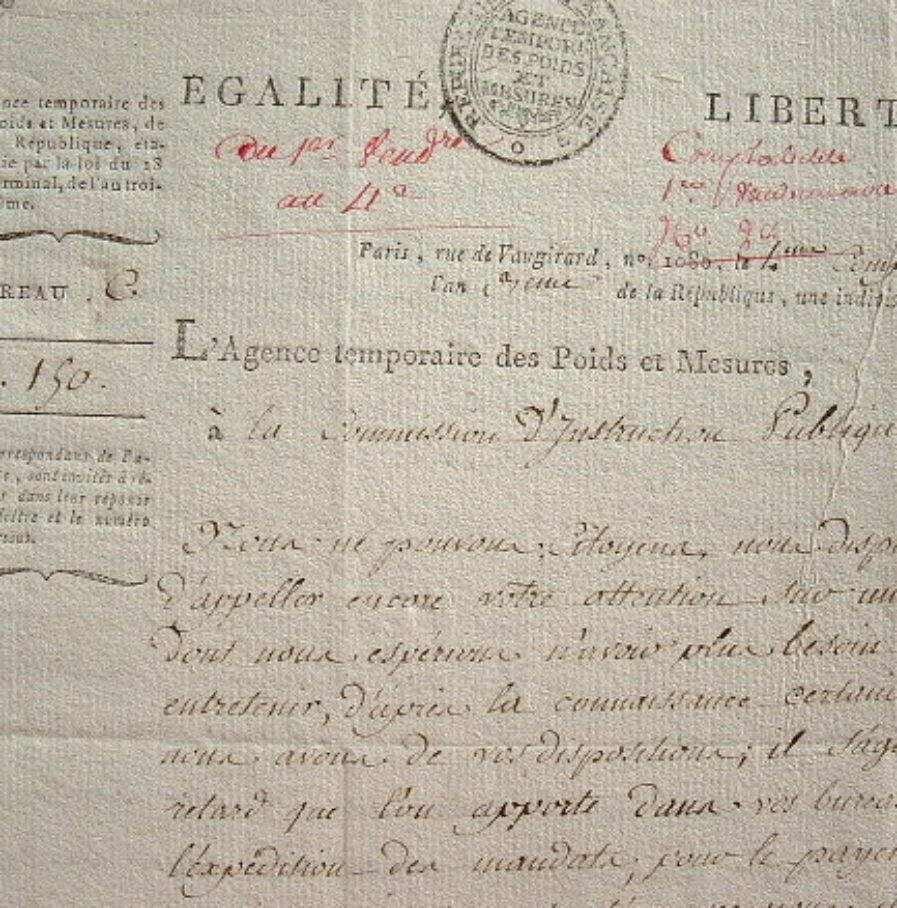 AGENCE
TEMPORE
DES POIDS
ET
MESURES
EGALITÉ,
LIBERT
nce temporaire des
oids et Mesures, de
République, éta-
ie par la loi du 18
rminal, de l'an troi-
me.
Du 1er Vendre
au 4e
Comptabilité
1er Vendemiaire
Paris, rue de Vaugirard, no. 1080, le
l'an
de la République, une indivis
REAU. C.
. 150.
rrespondans de Pa-
, sont invités à
r dans leur réponse
lettre et le numéro
L'Agence temporaire des Poids et Mesures,
à la Commission D'Instruction Publiqu
Nous ne pouvons, Citoyens, nous Dispe
D'appeller encore votre attention sur un
Dont nous espérions n'avoir plus besoin
entretenir, D'après la connaissance certain
nous avons de vos dispositions; il s'agi
retard que l'on apporte Dans vos burea
l'expédition des mandats, pour le payem